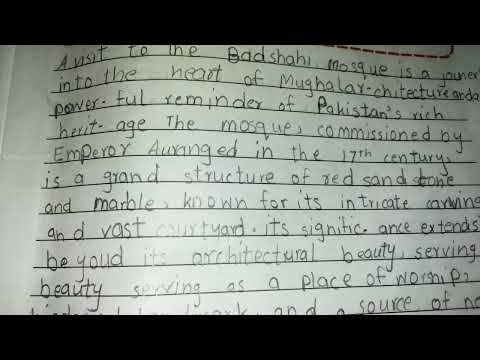 A visit to the Badshahi mosque is a
into the heart of Mughalar-chitecture and a
power-ful reminder of Pakistan's rich
herit-age The mosque, commissioned by
Emperor Auranged in the 17th century,
is a grand structure of red sandstone
and marble, known for its intricate
and vast courtyard. its signific-ance extends
beyoud its architectural beauty, serving
beauty serving as a place of worship,
landmark, and a source of